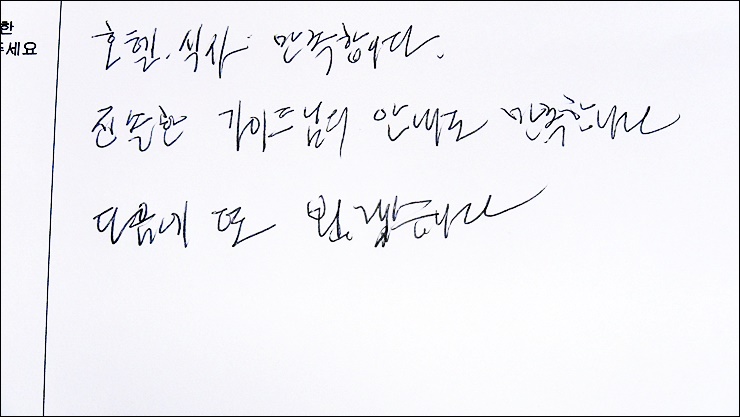 한
주세요
호텔. 식사. 만족합니다.
친절한 가이드님의 안내도 만족합니다
다음에 또 뵙겠습니다